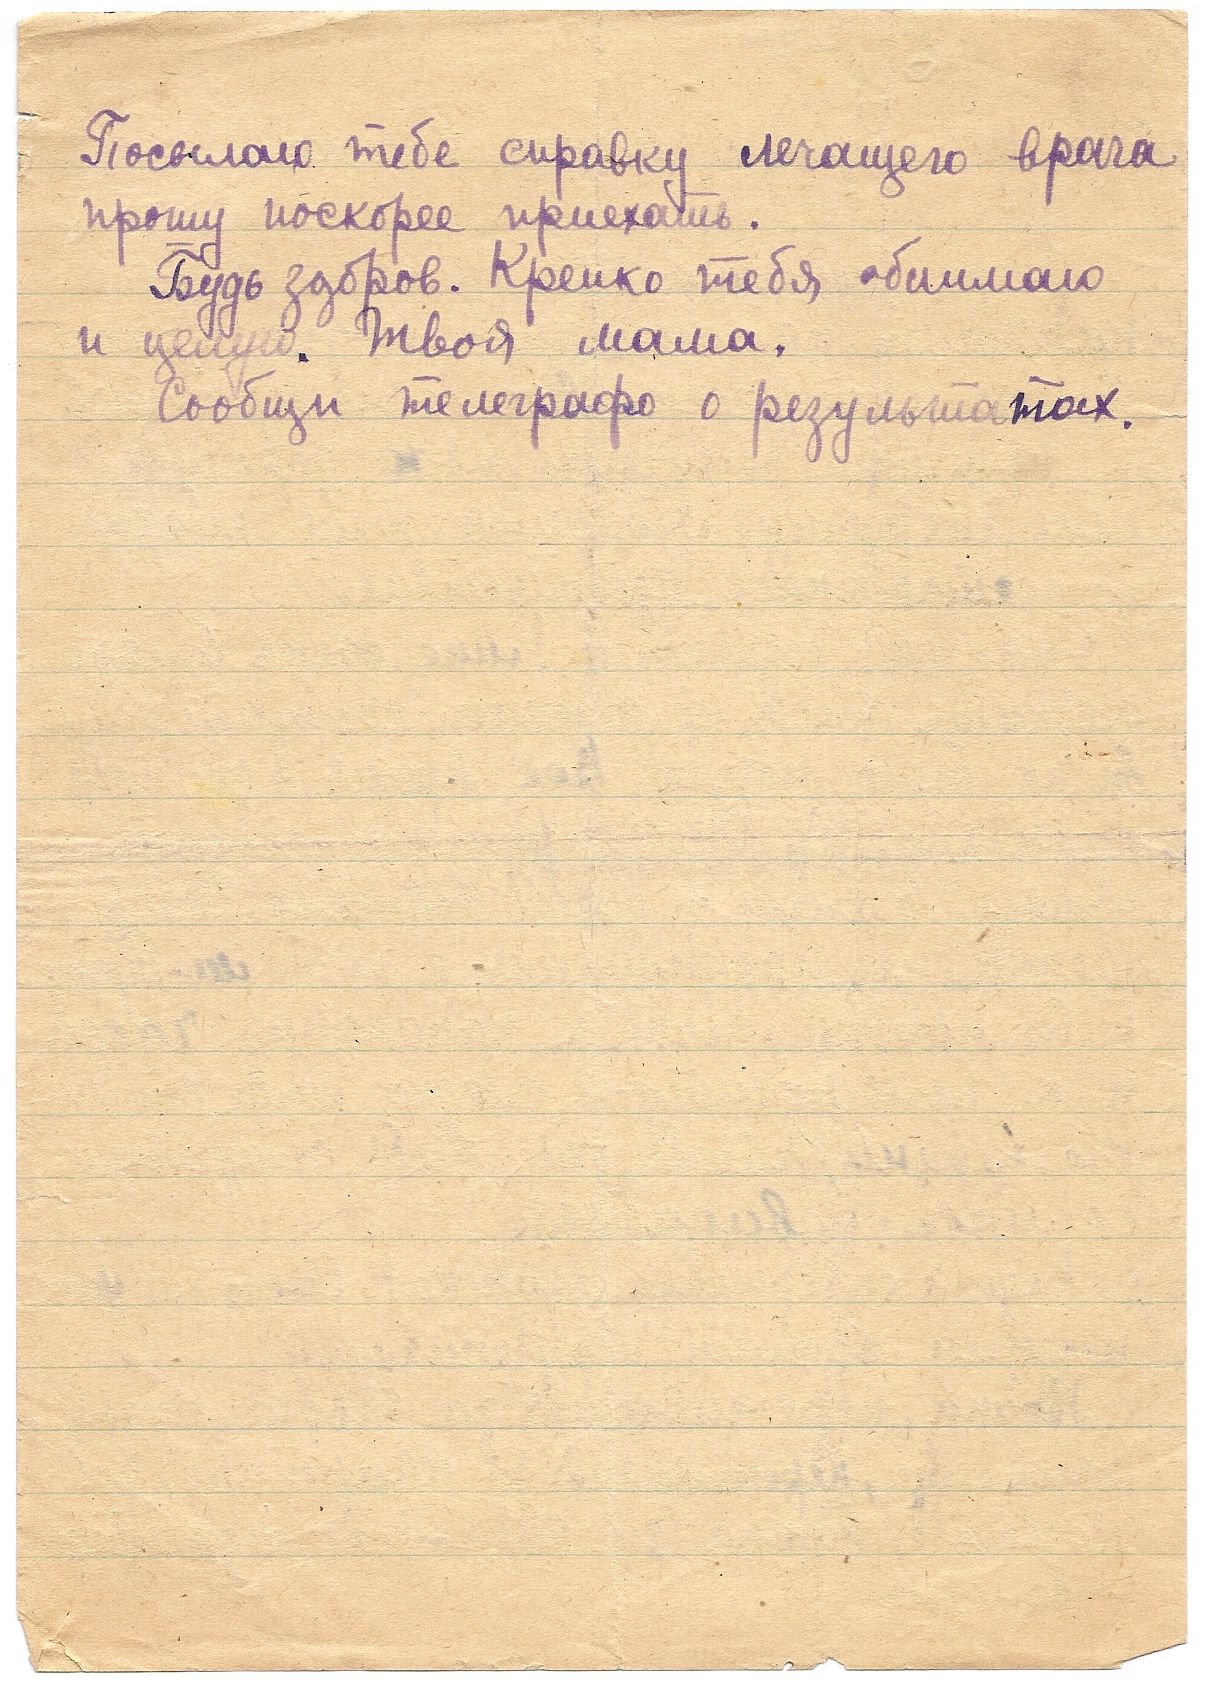 Посылаю тебе справку лечащего врача
прошу поскорее приехать.
Будь здоров. Крепко тебя обнимаю
и целую. Твоя мама.
Сообщи телеграфо о результатах.